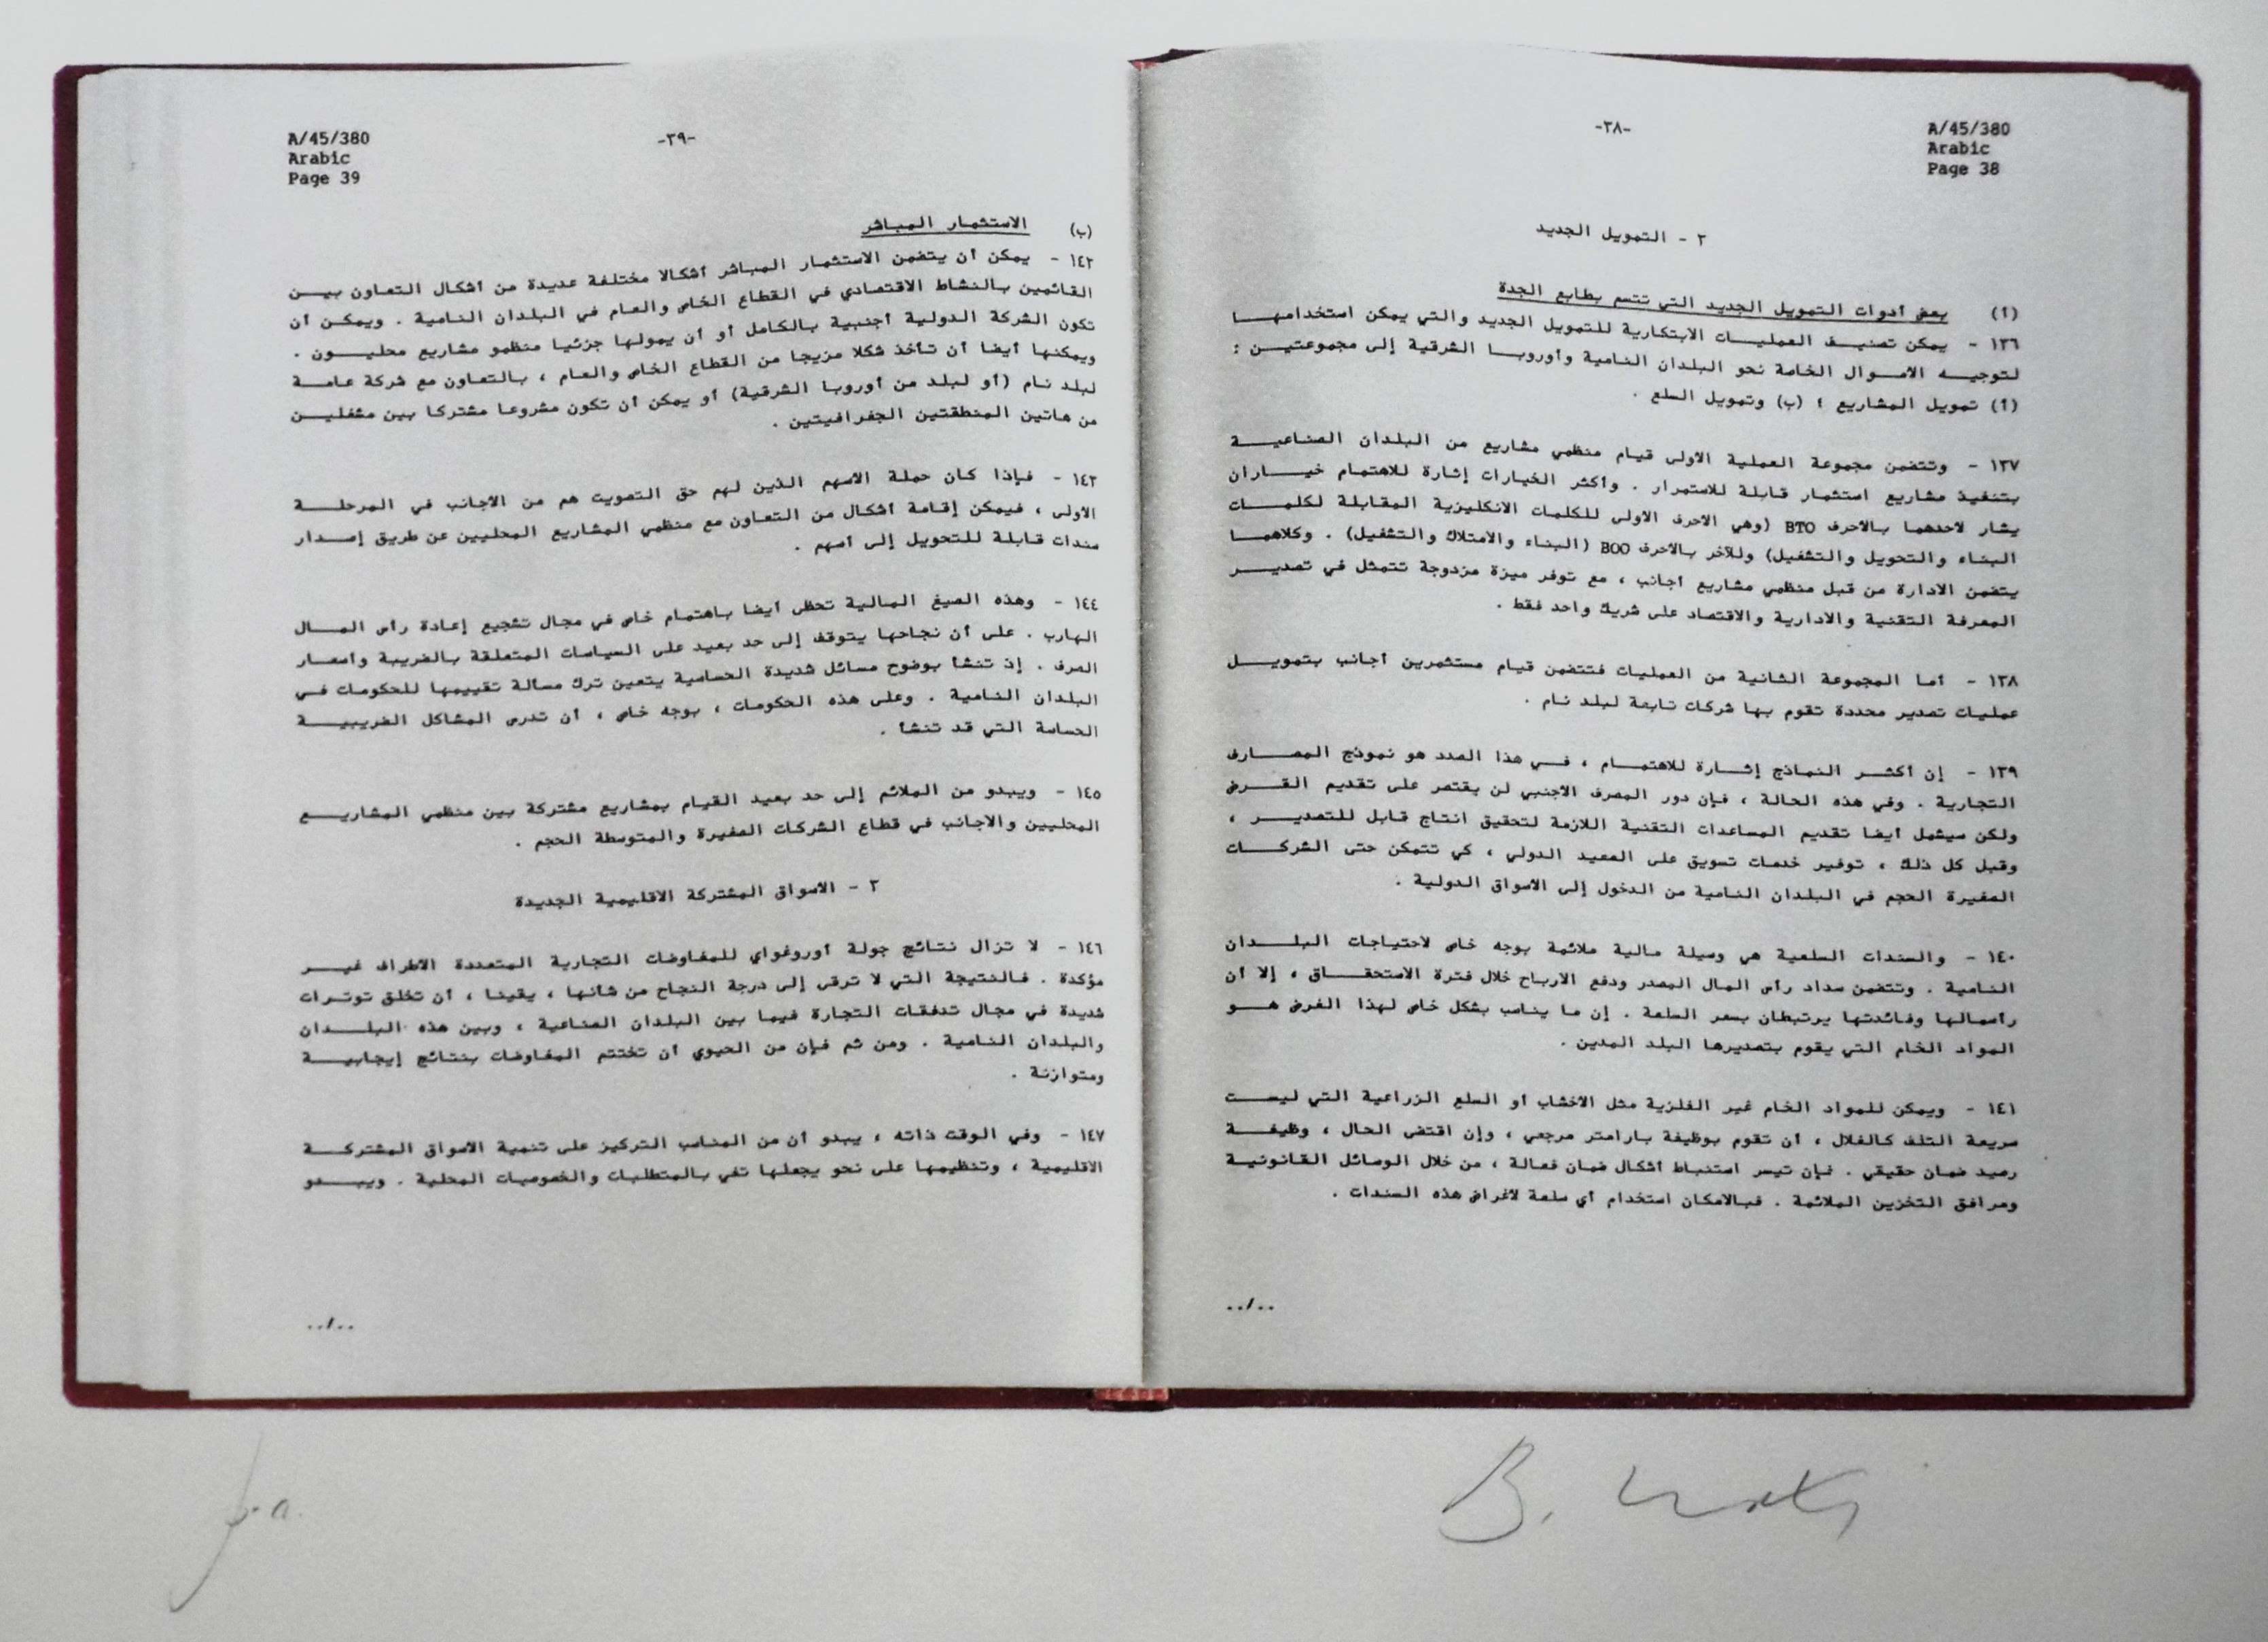 A/45/380
Arabic
Page 38
-٣٨-
٢ - التمويل الجديد
(أ) بعض أدوات التمويل الجديد التي تتسم بطابع الجدة
١٣٦ - يمكن تصنيف العمليات الابتكارية للتمويل الجديد والتي يمكن استخدامها
لتوجيه الاموال الخاصة نحو البلدان النامية وأوروبا الشرقية إلى مجموعتين :
(أ) تمويل المشاريع ؛ (ب) وتمويل السلع .
١٣٧ - وتتضمن مجموعة العملية الاولى قيام منظمي مشاريع من البلدان الصناعية
بتنفيذ مشاريع استثمار قابلة للاستمرار . وأكثر الخيارات إثارة للاهتمام خياران
يشار لاحدهما بالاحرف BTO (وهي الاحرف الاولى للكلمات الانكليزية المقابلة لكلمات
البناء والتحويل والتشغيل) وللآخر بالاحرف BOO (البناء والامتلاك والتشغيل) . وكلاهما
يتضمن الادارة من قبل منظمي مشاريع أجانب ، مع توفر ميزة مزدوجة تتمثل في تصدير
المعرفة التقنية والادارية والاقتصاد على شريك واحد فقط .
١٣٨ - أما المجموعة الثانية من العمليات فتتضمن قيام مستثمرين أجانب بتمويل
عمليات تصدير محددة تقوم بها شركات تابعة لبلد نام .
١٣٩ - إن أكثر النماذج إثارة للاهتمام ، في هذا الصدد هو نموذج المصارف
التجارية . وفي هذه الحالة ، فإن دور المصرف الاجنبي لن يقتصر على تقديم القرض
ولكن سيشمل أيضا تقديم المساعدات التقنية اللازمة لتحقيق انتاج قابل للتصدير ،
وقبل كل ذلك ، توفير خدمات تسويق على الصعيد الدولي ، كي تتمكن حتى الشركات
الصغيرة الحجم في البلدان النامية من الدخول إلى الاسواق الدولية .
١٤٠ - والسندات السلعية هي وسيلة مالية ملائمة بوجه خاص لاحتياجات البلدان
النامية . وتتضمن سداد رأس المال المصدر ودفع الارباح خلال فترة الاستحقاق ، إلا أن
رأسمالها وفائدتها يرتبطان بسعر السلعة . إن ما يناسب بشكل خاص لهذا الغرض هو
المواد الخام التي يقوم بتصديرها البلد المدين .
١٤١ - ويمكن للمواد الخام غير الفلزية مثل الاخشاب أو السلع الزراعية التي ليست
سريعة التلف كالغلال ، أن تقوم بوظيفة بارامتر مرجعي ، وإن اقتضى الحال ، وظيفة
رصيد ضمان حقيقي . فإن تيسر استنباط أشكال ضمان فعالة ، من خلال الوسائل القانونية
ومرافق التخزين الملائمة . فبالامكان استخدام أي سلعة لاغراض هذه السندات .
../..
A/45/380
Arabic
Page 39
-٣٩-
(ب) الاستثمار المباشر
١٤٢ - يمكن أن يتضمن الاستثمار المباشر أشكالا مختلفة عديدة من أشكال التعاون بين
القائمين بالنشاط الاقتصادي في القطاع الخاص والعام في البلدان النامية . ويمكن أن
تكون الشركة الدولية أجنبية بالكامل أو أن يمولها جزئيا منظمو مشاريع محليون .
ويمكنها أيضا أن تأخذ شكلا مزيجا من القطاع الخاص والعام ، بالتعاون مع شركة عامة
لبلد نام (أو لبلد من أوروبا الشرقية) أو يمكن أن تكون مشروعا مشتركا بين مشغلين
من هاتين المنطقتين الجغرافيتين .
١٤٣ - فإذا كان حملة الاسهم الذين لهم حق التصويت هم من الاجانب في المرحلة
الاولى ، فيمكن إقامة أشكال من التعاون مع منظمي المشاريع المحليين عن طريق إصدار
سندات قابلة للتحويل إلى أسهم .
١٤٤ - وهذه الصيغ المالية تحظى أيضا باهتمام خاص في مجال تشجيع إعادة رأس المال
الهارب . على أن نجاحها يتوقف إلى حد بعيد على السياسات المتعلقة بالضريبة وأسعار
الصرف . إذ تنشأ بوضوح مسائل شديدة الحساسية يتعين ترك مسألة تقييمها للحكومات في
البلدان النامية . وعلى هذه الحكومات ، بوجه خاص ، أن تدرس المشاكل الضريبية
الحساسة التي قد تنشأ .
١٤٥ - ويبدو من الملائم إلى حد بعيد القيام بمشاريع مشتركة بين منظمي المشاريع
المحليين والاجانب في قطاع الشركات الصغيرة والمتوسطة الحجم .
٣ - الاسواق المشتركة الاقليمية الجديدة
١٤٦ - لا تزال نتائج جولة أوروغواي للمفاوضات التجارية المتعددة الاطراف غير
مؤكدة . فالنتيجة التي لا ترقى إلى درجة النجاح من شأنها ، يقينا ، أن تخلق توترات
شديدة في مجال تدفقات التجارة فيما بين البلدان الصناعية ، وبين هذه البلدان
والبلدان النامية . ومن ثم فإن من الحيوي أن تختتم المفاوضات بنتائج إيجابية
ومتوازنة .
١٤٧ - وفي الوقت ذاته ، يبدو أن من المناسب التركيز على تنمية الاسواق المشتركة
الاقليمية ، وتنظيمها على نحو يجعلها تفي بالمتطلبات والخصوصيات المحلية . ويبدو
../..
B.